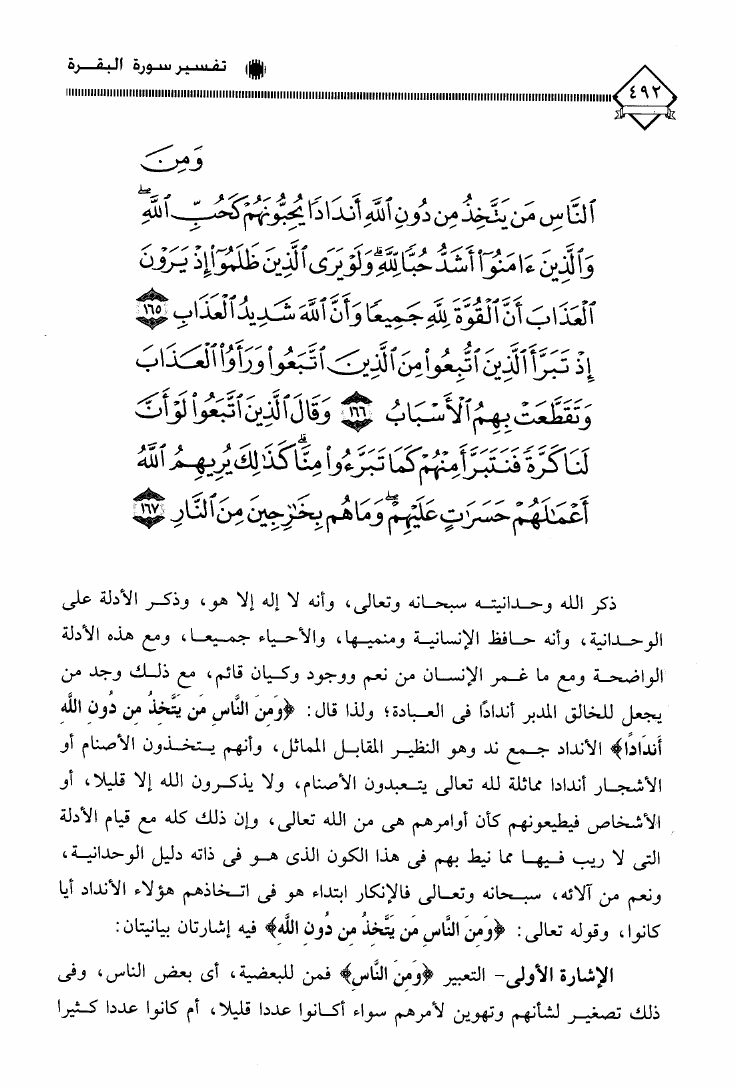 تفسير سورة البقرة
٤٩٢
وَمِنَ
ٱلنَّاسِ مَن يَتَّخِذُ مِن دُونِ ٱللَّهِ أَندَادًا يُحِبُّونَهُمْ كَحُبِّ ٱللَّهِۖ
وَٱلَّذِينَ ءَامَنُوٓا۟ أَشَدُّ حُبًّا لِّلَّهِۗ وَلَوْ يَرَى ٱلَّذِينَ ظَلَمُوٓا۟ إِذْ يَرَوْنَ
ٱلْعَذَابَ أَنَّ ٱلْقُوَّةَ لِلَّهِ جَمِيعًا وَأَنَّ ٱللَّهَ شَدِيدُ ٱلْعَذَابِ ١٦٥
إِذْ تَبَرَّأَ ٱلَّذِينَ ٱتُّبِعُوا۟ مِنَ ٱلَّذِينَ ٱتَّبَعُوا۟ وَرَأَوُا۟ ٱلْعَذَابَ
وَتَقَطَّعَتْ بِهِمُ ٱلْأَسْبَابُ ١٦٦ وَقَالَ ٱلَّذِينَ ٱتَّبَعُوا۟ لَوْ أَنَّ
لَنَا كَرَّةً فَنَتَبَرَّأَ مِنْهُمْ كَمَا تَبَرَّءُوا۟ مِنَّاۗ كَذَٰلِكَ يُرِيهِمُ ٱللَّهُ
أَعْمَٰلَهُمْ حَسَرَٰتٍ عَلَيْهِمْۖ وَمَا هُم بِخَٰرِجِينَ مِنَ ٱلنَّارِ ١٦٧
ذكر الله وحدانيته سبحانه وتعالى، وأنه لا إله إلا هو، وذكر الأدلة على
الوحدانية، وأنه حافظ الإنسانية ومنميها، والأحياء جميعا، ومع هذه الأدلة
الواضحة ومع ما غمر الإنسان من نعم ووجود وكيان قائم، مع ذلك وجد من
يجعل للخالق المدبر أندادًا فى العبادة؛ ولذا قال: ﴿وَمِنَ النَّاسِ مَن يَتَّخِذُ مِن دُونِ اللَّهِ
أَندَادًا﴾ الأنداد جمع ند وهو النظير المقابل المماثل، وأنهم يتخذون الأصنام أو
الأشجار أندادا مماثلة لله تعالى يتعبدون الأصنام، ولا يذكرون الله إلا قليلا، أو
الأشخاص فيطيعونهم كأن أوامرهم هى من الله تعالى، وإن ذلك كله مع قيام الأدلة
التى لا ريب فيها مما نيط بهم فى هذا الكون الذى هو فى ذاته دليل الوحدانية،
ونعم من آلائه، سبحانه وتعالى فالإنكار ابتداء هو فى اتخاذهم هؤلاء الأنداد أيا
كانوا، وقوله تعالى: ﴿وَمِنَ النَّاسِ مَن يَتَّخِذُ مِن دُونِ اللَّهِ﴾ فيه إشارتان بيانيتان:
الإشارة الأولى- التعبير ﴿وَمِنَ النَّاسِ﴾ فمن للبعضية، أى بعض الناس، وفى
ذلك تصغير لشأنهم وتهوين لأمرهم سواء أكانوا عددا قليلا، أم كانوا عددا كثيرا